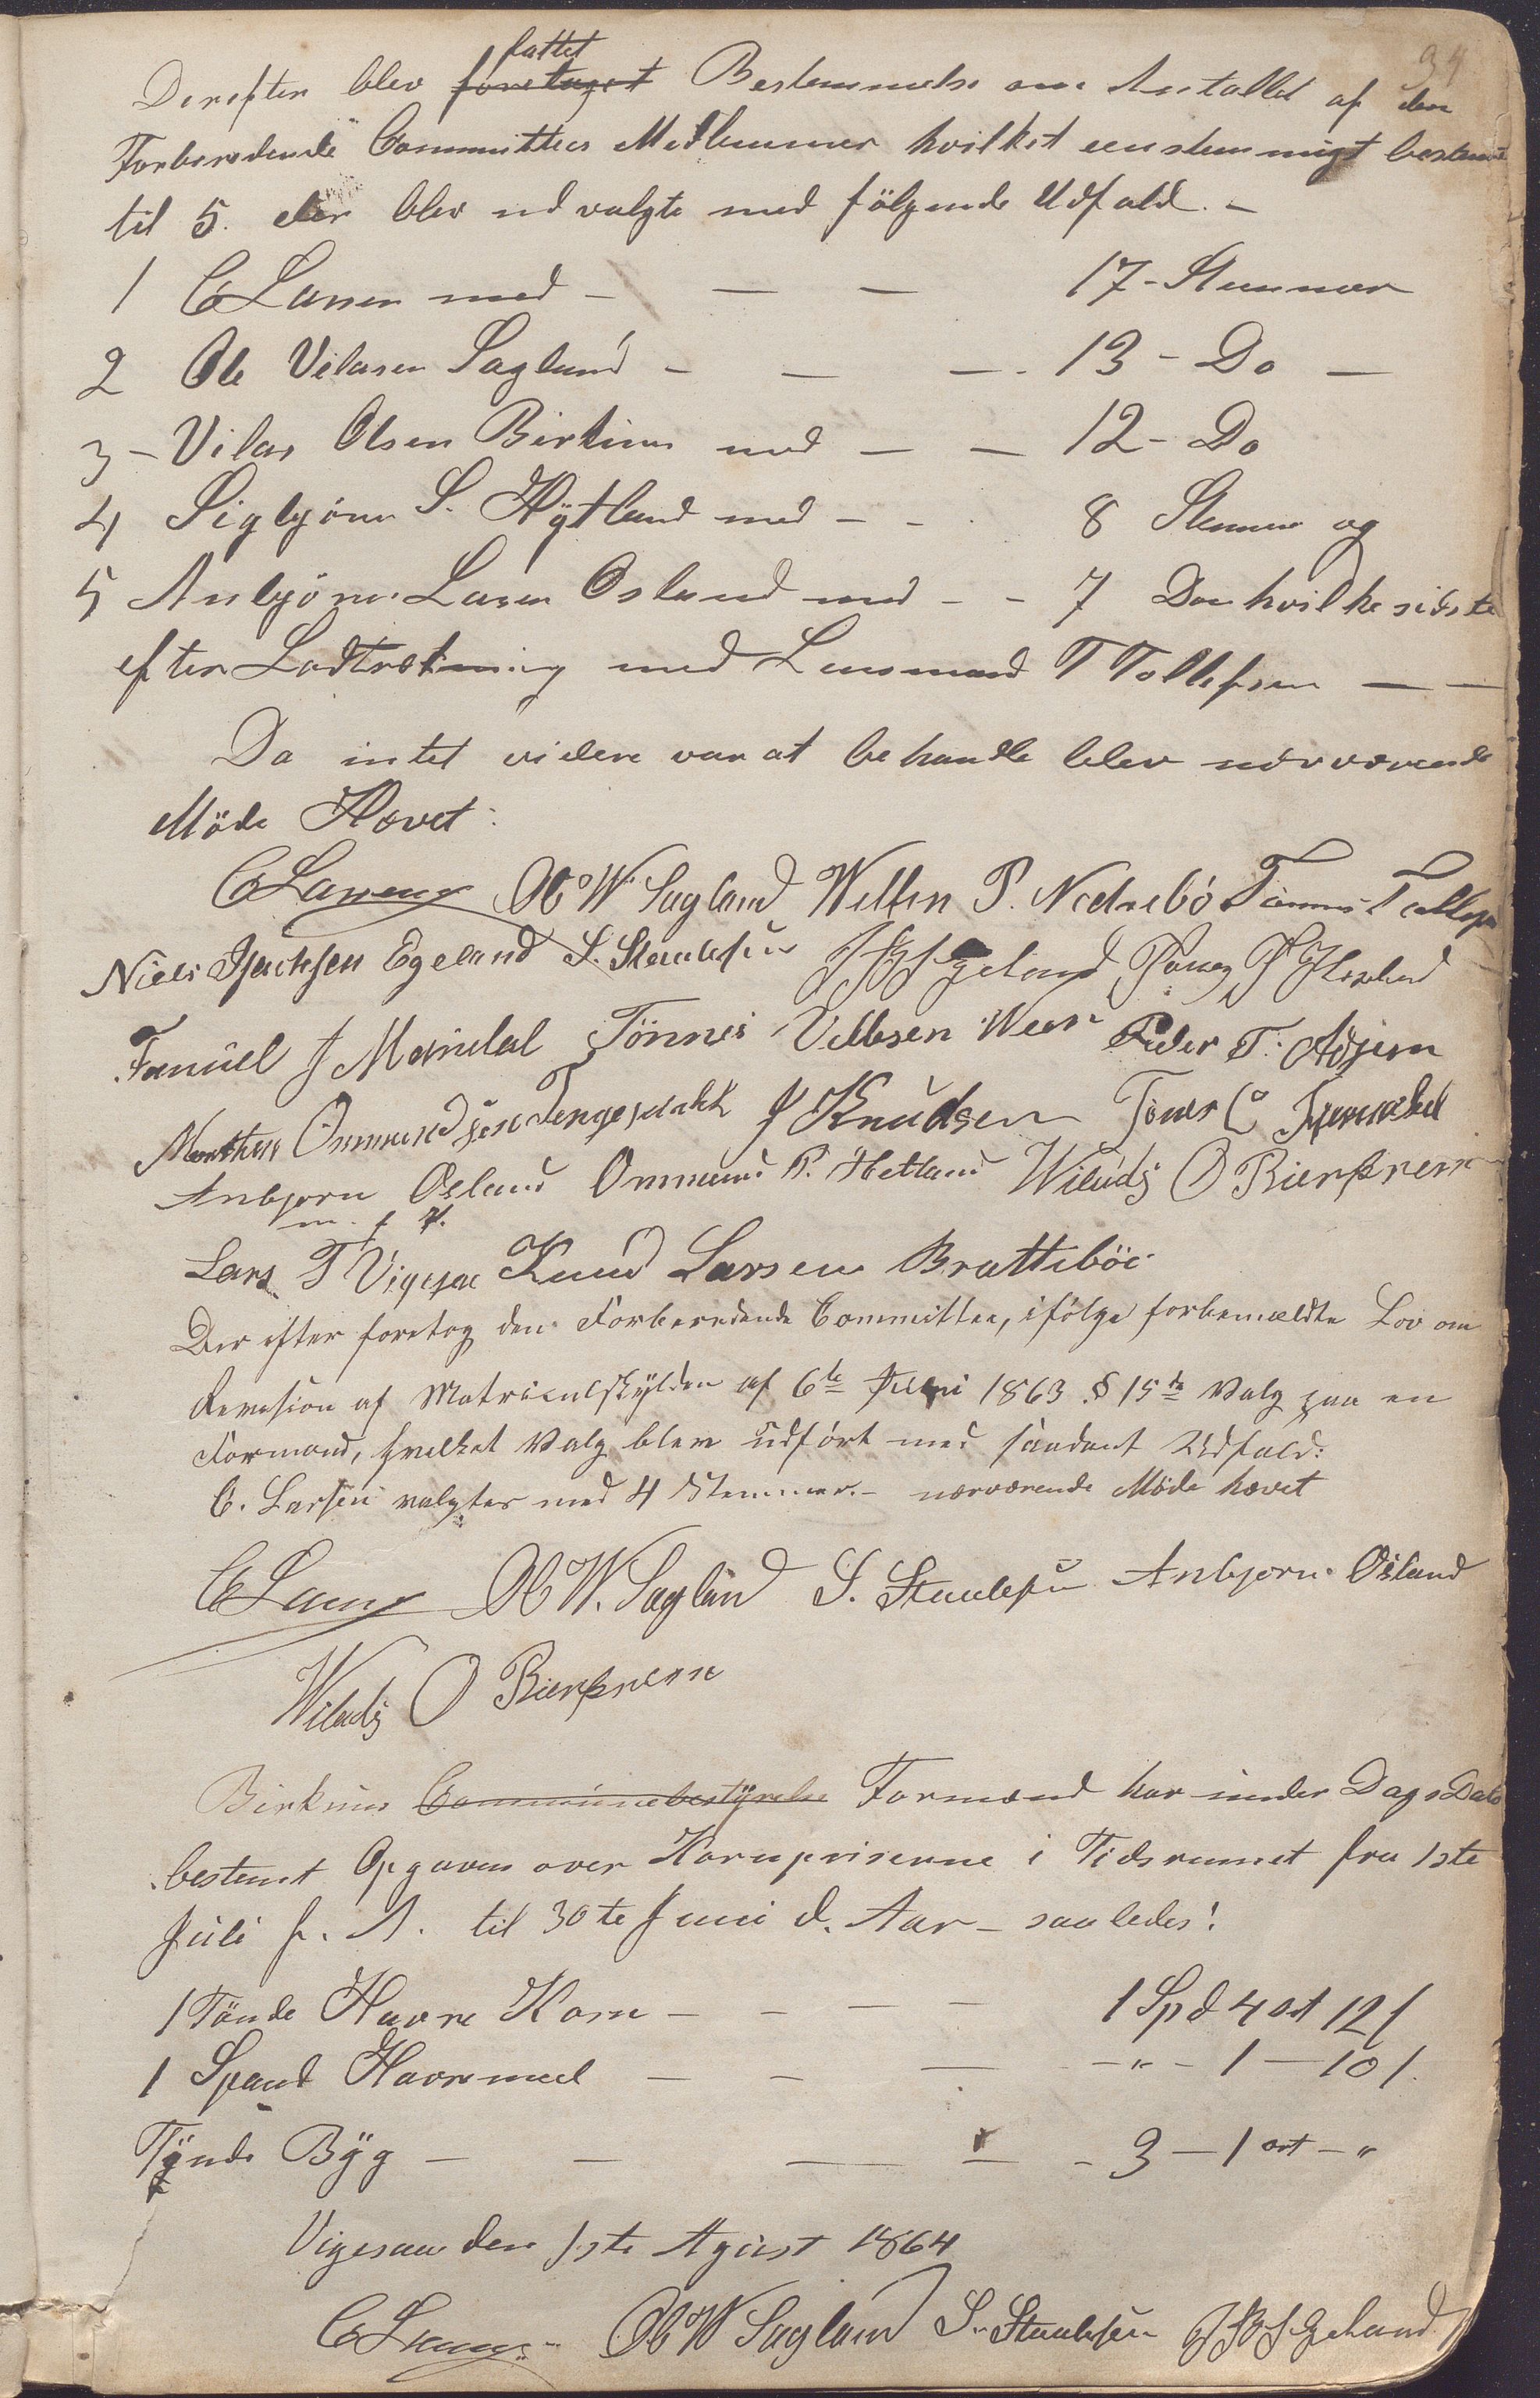 34
fattet
Derefter blev foretaget Bestemmelse om Antallet af den
Forberedende Committees Medlemmer hvilket eenstemmigt bestemt
til 5. der blev udvalgte med følgende Udfald. -
1 C Larsen med - — — 17 - Stemmer
2 Ole Vilasen Sagland - — — . 13 - Do —
3 - Vilas Olsen Birkrem med — — 12 - Do
4 Sigbjørn S. Hÿtland med - - . 8 Stemmer og
5 Anbjørn Larsen Osland med - - 7 Do hvilke sidste
efter Lodtrækning med Lensmand T Tollefsen — —
Da intet videre var at behandle blev nærværende
Møde Hævet.
C Larsen Ole W. Sagland Willen P. Nedrebö Tønnes Tollefsen
Niels Isachsen Egeland S. Staalesen Egeland
Samuel J Mondal Tönnes Villesen Ween Peder T:
Morthen Ommundsen Tengesdahl J Knudsen
Anbjorn Osland Ommund P. Hetland Wiladz O Bierkrem
m. f. P.
Lars T Vigesaa Knud Larsen Brattebøe
Derefter foretog den Forberedende Committee, ifölge forbemældte Lov om
Revision af Matriculskÿlden af 6te Juni 1863 § 15de Valg paa en
Formand, hvilket Valg blev üdfört med saadant Udfald:
C. Larsen valgtes med 4 Stemmer. - nærværende Møde hævet
C Larsen Ole W. Sagland S. Staalesen Anbjorn Osland
Wiladz O Bierkrem
Birkrems Communebestÿrelse Formænd har under Dags Dato
bestemt Opgaven over Kornpriserne i Tidsrummet fra 1ste
Juli f. A. til 30te Juni d. Aar - saaledes:
1 Tönde Havre Korn - - — — 1 Spd 4 ort 12 s
1 Spand Havremeel — - — - " - 1 — 10 s.
Tÿnde Bÿg — — — — - 3 — 1 ort - "
Vigesaa den 1ste Agust 1864
C Larsen Ole W Sagland S. Staalesen Egeland